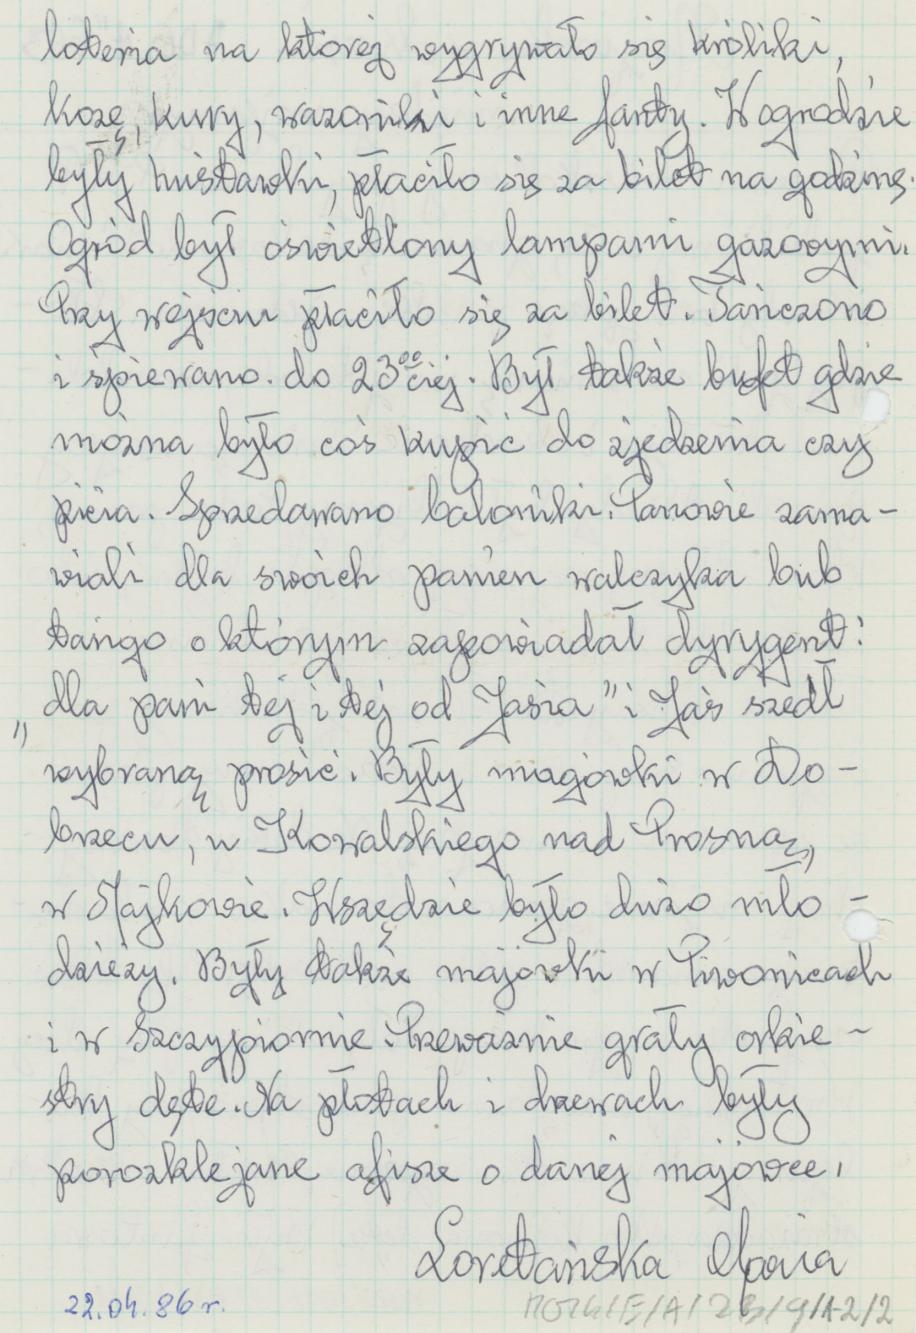 loteria na której wygrywało się króliki,
kozę, kury, wazoniki i inne fanty. W ogrodzie
były huśtawki, płaciło się za bilet na godzinę.
Ogród był oświetlony lampami gazowymi.
Przy wejściu płaciło się za bilet. Tańczono
i śpiewano. do 23⁰⁰ciej. Był także bufet gdzie
można było coś kupić do zjedzenia czy
picia. Sprzedawano baloniki. Panowie zama-
wiali dla swoich panien walczyka lub
tango o którym zapowiadał dyrygent:
„dla pani tej i tej od Jasia" i Jaś szedł
wybraną prosić. Były majówki w Do-
brzecu, u Kowalskiego nad Prosną,
w Majkowie. Wszędzie było dużo mło-
dzieży. Były także majówki w Piwonicach
i w Szczypiornie. Przeważnie grały orkie-
stry dęte. Na płotach i drzewach były
porozklejane afisze o danej majówce.
Loretańska Maria
22.04.86 r.